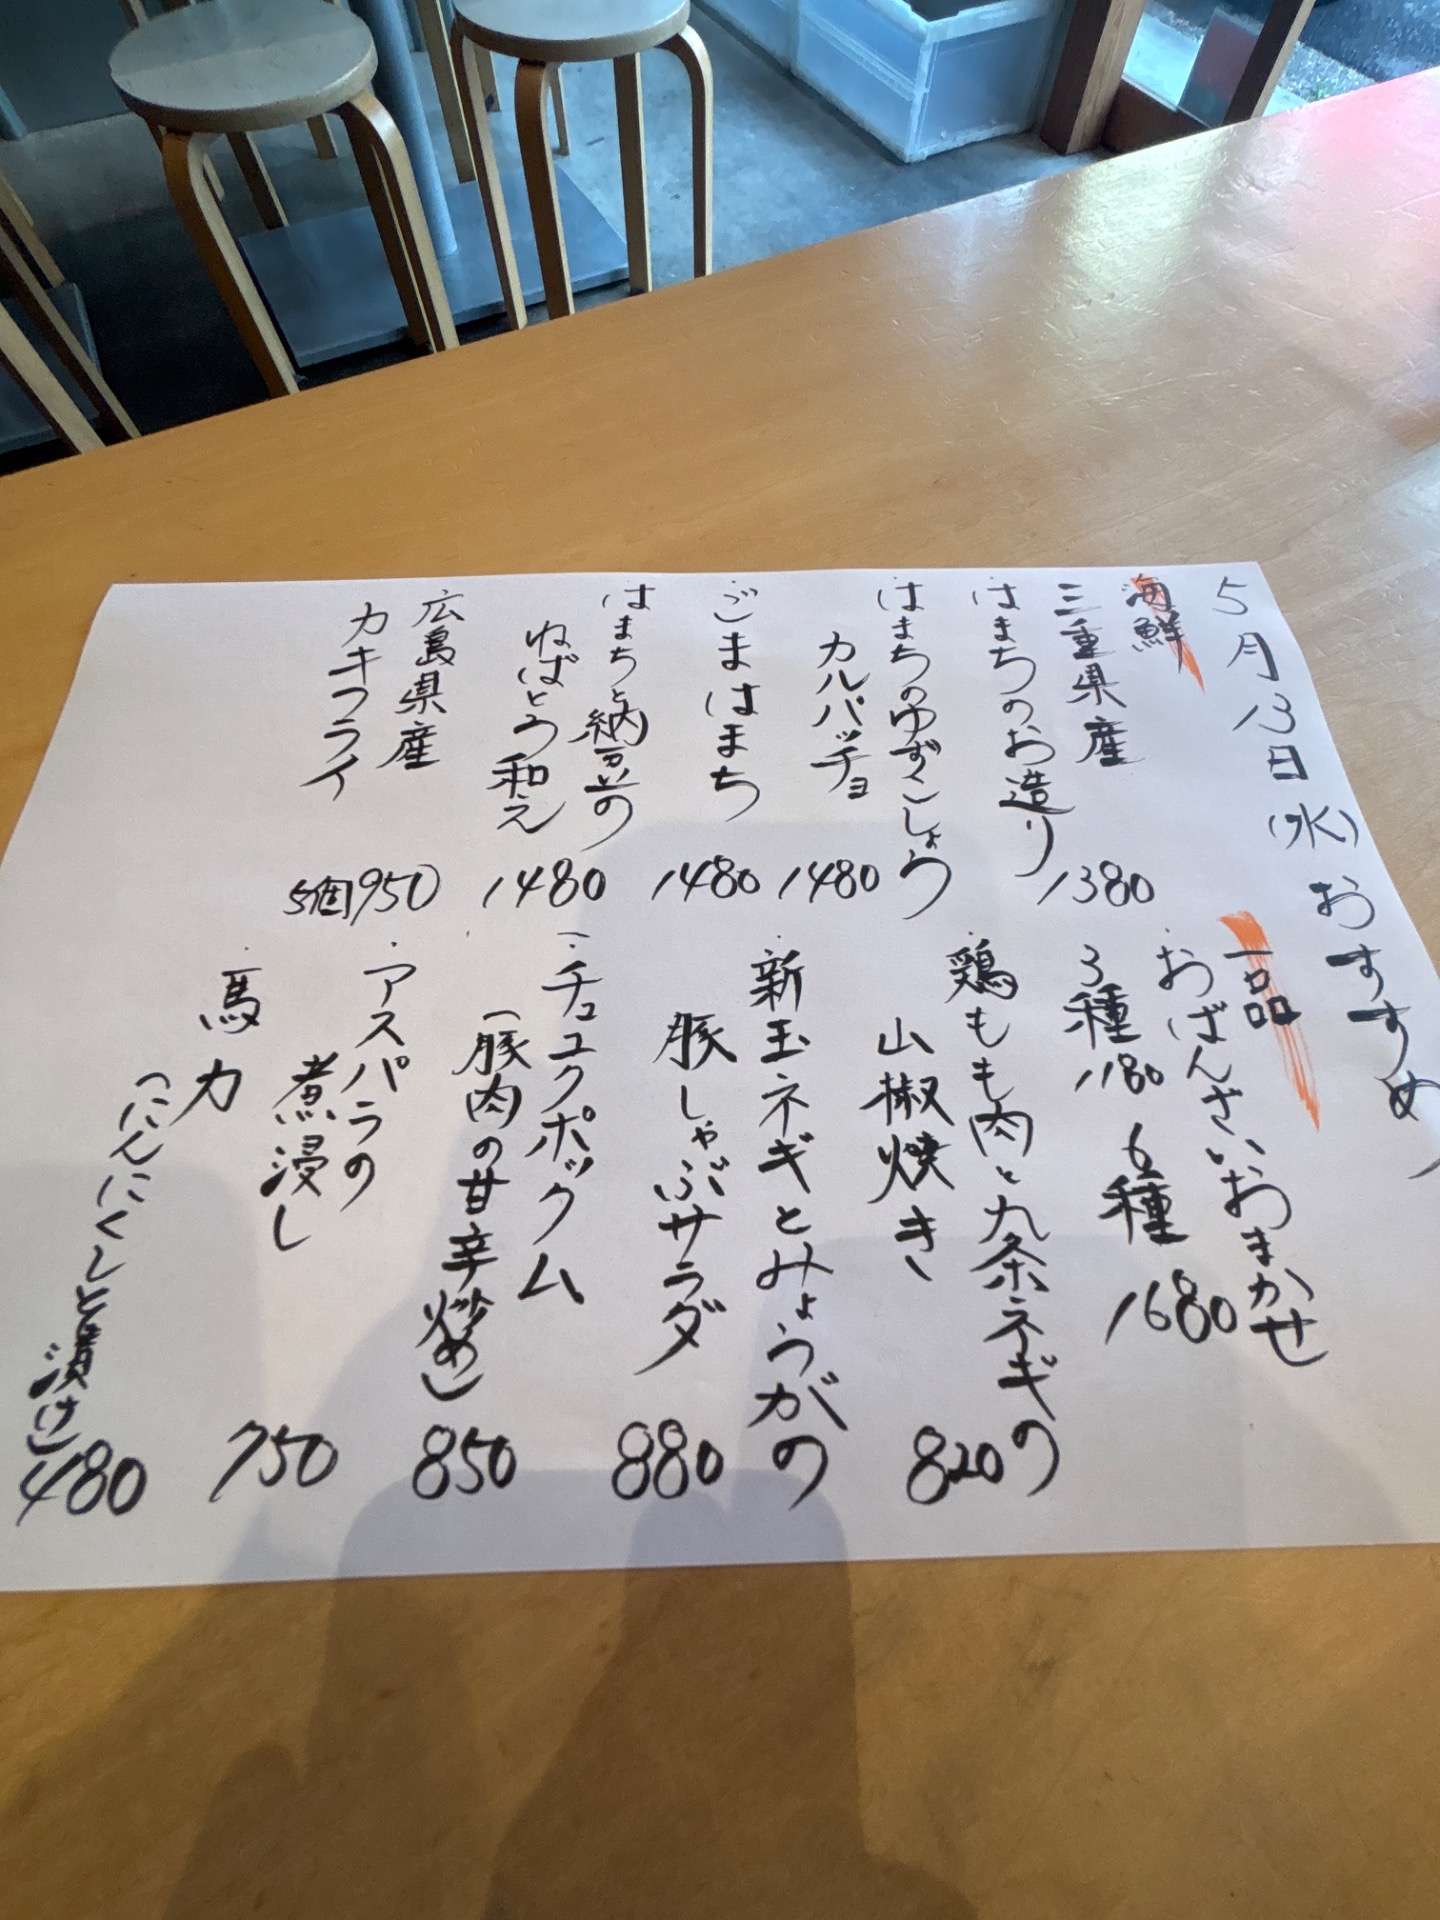 5月13日(水)おすすめ
海鮮
三重県産
・はまちのお造り
1380
・はまちのゆずこしょう
カルパッチョ
1480
・ごまはまち
1480
・はまちと納豆の
ねばとろ和え
1480
・広島県産
カキフライ
5個950
一品
・おばんざいおまかせ
3種1180 6種1680
・鶏もも肉と九条ネギの
山椒焼き
820
・新玉ネギとみょうがの
豚しゃぶサラダ
880
・チェユクポックム
(豚肉の甘辛炒め)
850
・アスパラの
煮浸し
750
・馬力
(にんにくしと漬け)
480